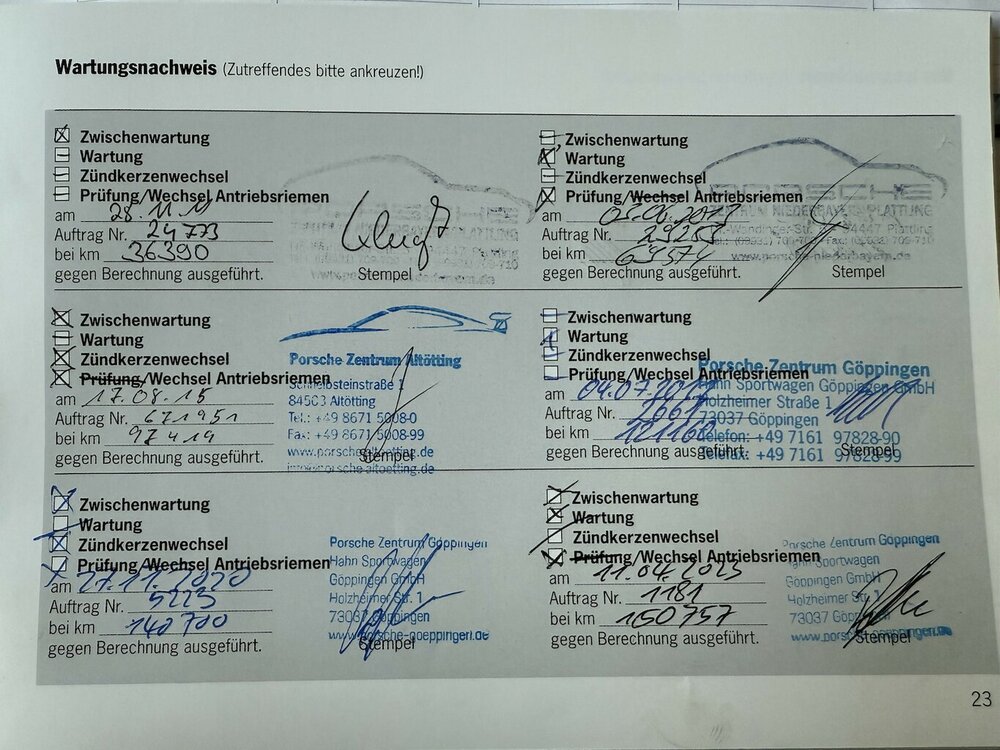 Wartungsnachweis (Zutreffendes bitte ankreuzen!)
Zwischenwartung
Wartung
Zündkerzenwechsel
Prüfung/Wechsel Antriebsriemen
am 28.11.11
Auftrag Nr. 24773
bei km 36390
gegen Berechnung ausgeführt.
Stempel
Zwischenwartung
Wartung
Zündkerzenwechsel
Prüfung/Wechsel Antriebsriemen
PORSCHE
am
ZENTRUM NIEDERBAYERN PLATTLING
Auftrag Nr. 29253
94447 Plattling
bei km
www.porsche-niederbayern.de
gegen Berechnung ausgeführt.
Stempel
Zwischenwartung
Wartung
Zündkerzenwechsel
Prüfung/Wechsel Antriebsriemen
am 17.08.15
Auftrag Nr. 671951
bei km 97419
gegen Berechnung ausgeführt.
Porsche Zentrum Altötting
84503 Altötting
Tel.: +49 8671 5008-0
Fax: +49 8671 5008-99
www.porsche-altoetting.de
info@porsche-altoetting.de
Stempel
Zwischenwartung
Wartung
Zündkerzenwechsel
Prüfung/Wechsel Antriebsriemen
am
Auftrag Nr.
bei km 121160
gegen Berechnung ausgeführt.
Porsche Zentrum Göppingen
Hahn Sportwagen Göppingen GmbH
Holzheimer Straße 1
73037 Göppingen
Telefon: +49 7161 97828-90
Telefax: +49 7161 97828-99
Stempel
Zwischenwartung
Wartung
Zündkerzenwechsel
Prüfung/Wechsel Antriebsriemen
am 27.11.2020
Auftrag Nr. 5223
bei km 140700
gegen Berechnung ausgeführt.
Porsche Zentrum Göppingen
Hahn Sportwagen
Göppingen GmbH
Holzheimer Str. 1
73037 Göppingen
www.porsche-goeppingen.de
Stempel
Zwischenwartung
Wartung
Zündkerzenwechsel
Prüfung/Wechsel Antriebsriemen
am 11.04.2023
Auftrag Nr. 1181
bei km 150757
gegen Berechnung ausgeführt.
Porsche Zentrum Göppingen
Hahn Sportwagen
Göppingen GmbH
Holzheimer Str. 1
73037 Göppingen
www.porsche-goeppingen.de
Stempel
23